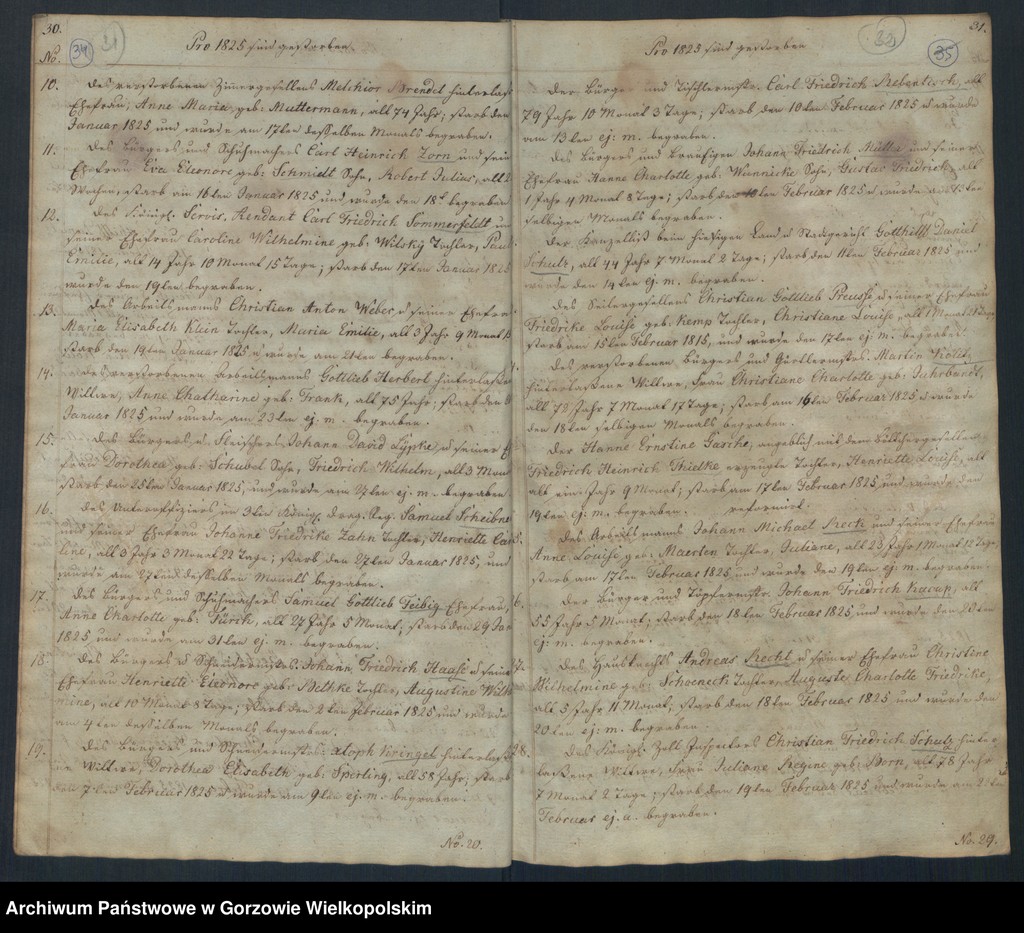 30.
34
31
No.
Pro 1825 sind gestorben
10. Des verstorbenen Zimergesellens Melchior Brendel hinterlaß
Ehefrau, Anne Maria geb: Muttermann, alt 74 Jahr; starb den
Januar 1825 und wurde am 17ten desselben Monats begraben.
11. Des Bürgers und Schuhmachers Carl Heinrich Zorn und sein
Ehefrau Eva Eleonore geb: Schmidt Sohn, Robert Julius, alt 2
Wochen, starb am 16ten Januar 1825 und wurde den 18t begraben
12. Des Königl. Servis, Rendant Carl Friedrich Sommerfeldt und
seiner Ehefrau Caroline Wilhelmine geb: Tochter,
Emilie, alt 14 Jahr 10 Monat 15 Tage; starb den 17ten Januar 1825
wurde den 19ten begraben.
13. Des Arbeitsmanns Christian Anton Weber u seiner Ehefrau
Maria Elisabeth Klein Tochter, Maria Emilie, alt 3 Jahr 9 Monat
starb den 19ten Januar 1825 u wurde am 21ten begraben.
14. Des verstorbenen Arbeitsmanns Gottlieb Herbert hinterlaß
Wittwe, Anne Chatharine geb: Frank, alt 75 Jahr; starb den
Januar 1825 und wurde am 23ten ej. m. begraben.
15. Des Bürgers u. Fleischers Johann David Lypke u seiner
frau Dorothea geb: Sohn, Friedrich Wilhelm, alt 3 Mon
starb den 25ten Januar 1825, und wurde am 27ten ej: m. begraben
16. Des Unteroffiziers im 3ten Königl. Drag. Reg. Samuel Scheibner
und seiner Ehefrau Johanne Friedrike Zahn Tochter, Henriette Caro
line, alt 3 Jahr 3 Monat 22 Tage; starb den 27ten Januar 1825, und
wurde am desselben Monats begraben.
17. Des Bürgers und Schuhmachers Samuel Gottlieb Feibig Ehefrau,
Anne Charlotte geb: Fürch, alt 27 Jahr 5 Monat; starb den 29 Jan
1825, und wurde am 31ten ej. m. begraben.
18. Des Bürgers u Schneidermstrs: Johann Friedrich Haase u seine
Ehefrau Henriette Eleonore geb: Bethke Tochter, Augustine Wilhel
mine, alt 10 Monat 8 Tage; starb den 2ten Februar 1825 und wurde
am 4ten desselben Monats begraben.
19. Des Bürgers und Schneidermstrs: Xtoph hinterlaß
Wittwe, Dorothea Elisabeth geb: Sperling, alt 58 Jahr, starb
den 7ten Februar 1825 u wurde am 9ten ej. m. begraben.
No. 20.
31.
32
35
Pro 1825 sind gestorben
Der Bürger und Tischlermstr. Carl Friedrich Rebentisch, alt
79 Jahr 10 Monat 3 Tage; starb den 10ten Februar 1825 u wurde
am 13ten ej: m. begraben.
Des Bürgers und Johann Friedrich Müller und seiner
Ehefrau Hanne Charlotte geb: Wannicke Sohn, Gustav Friedrich, alt
1 Jahr 4 Monat 8 Tage; starb den Februar 1825 u wurde am
selbigen Monats begraben.
Der Kanzellist beim hiesigen Land u Stadtgericht Gotthilff Daniel
Schulz, alt 44 Jahr 7 Monat 2 Tage; starb den 11ten Februar 1825 und
wurde den 14ten ej. m. begraben.
Des Seilergesellens Christian Gottlieb Preusse u seiner Ehefrau
Friedrike Louise geb: Kemp Tochter, Christiane Louise, alt 1 Monat
starb am 15ten Februar 1815, und wurde den 17ten ej. m. begraben.
Des verstorbenen Bürgers und Martin Violit
hinterlaßene Wittwe, Frau Christiane Charlotte geb:
alt 72 Jahr 7 Monat 17 Tage; starb am 16ten Februar 1825 u wurde
den 18ten selbigen Monats begraben.
Der Hanne Ernstine Gasche, angeblich mit dem
Friedrich Heinrich Thielke erzeugte Tochter, Henriette Louise, alt
alt ein Jahr 9 Monat; starb am 17ten Februar 1825 und wurde den
19ten ej: m. begraben. reformirt.
Des Arbeitsmanns Johann Michael Reck und seiner Ehefrau
Anne Louise geb: Maerten Tochter, Juliane, alt 23 Jahr 1 Monat 12 Tage
starb am 17ten Februar 1825 und wurde den 19ten ej: m. begraben
Der Bürger und Töpfermstr. Johann Friedrich alt
55 Jahr 5 Monat; starb den 18ten Februar 1825 und wurde den 20ten
ej: m. begraben.
Des Hausknechts Andreas Recht u seiner Ehefrau Christine
Wilhelmine geb: Schoeneck Tochter, Auguste Charlotte Friedrike,
alt 3 Jahr 11 Monat; starb den 18ten Februar 1825 und wurde den
20ten ej: m. begraben.
28. Des Königl. Zoll Inspectors Christian Friedrich Schulz hinter
laßene Wittwe, Frau Juliane Regine geb: Born, alt 78 Jahr
7 Monat 2 Tage; starb den 19ten Februar 1825 und wurde am
Februar ej. a. begraben.
No. 29.
Archiwum Państwowe w Gorzowie Wielkopolskim